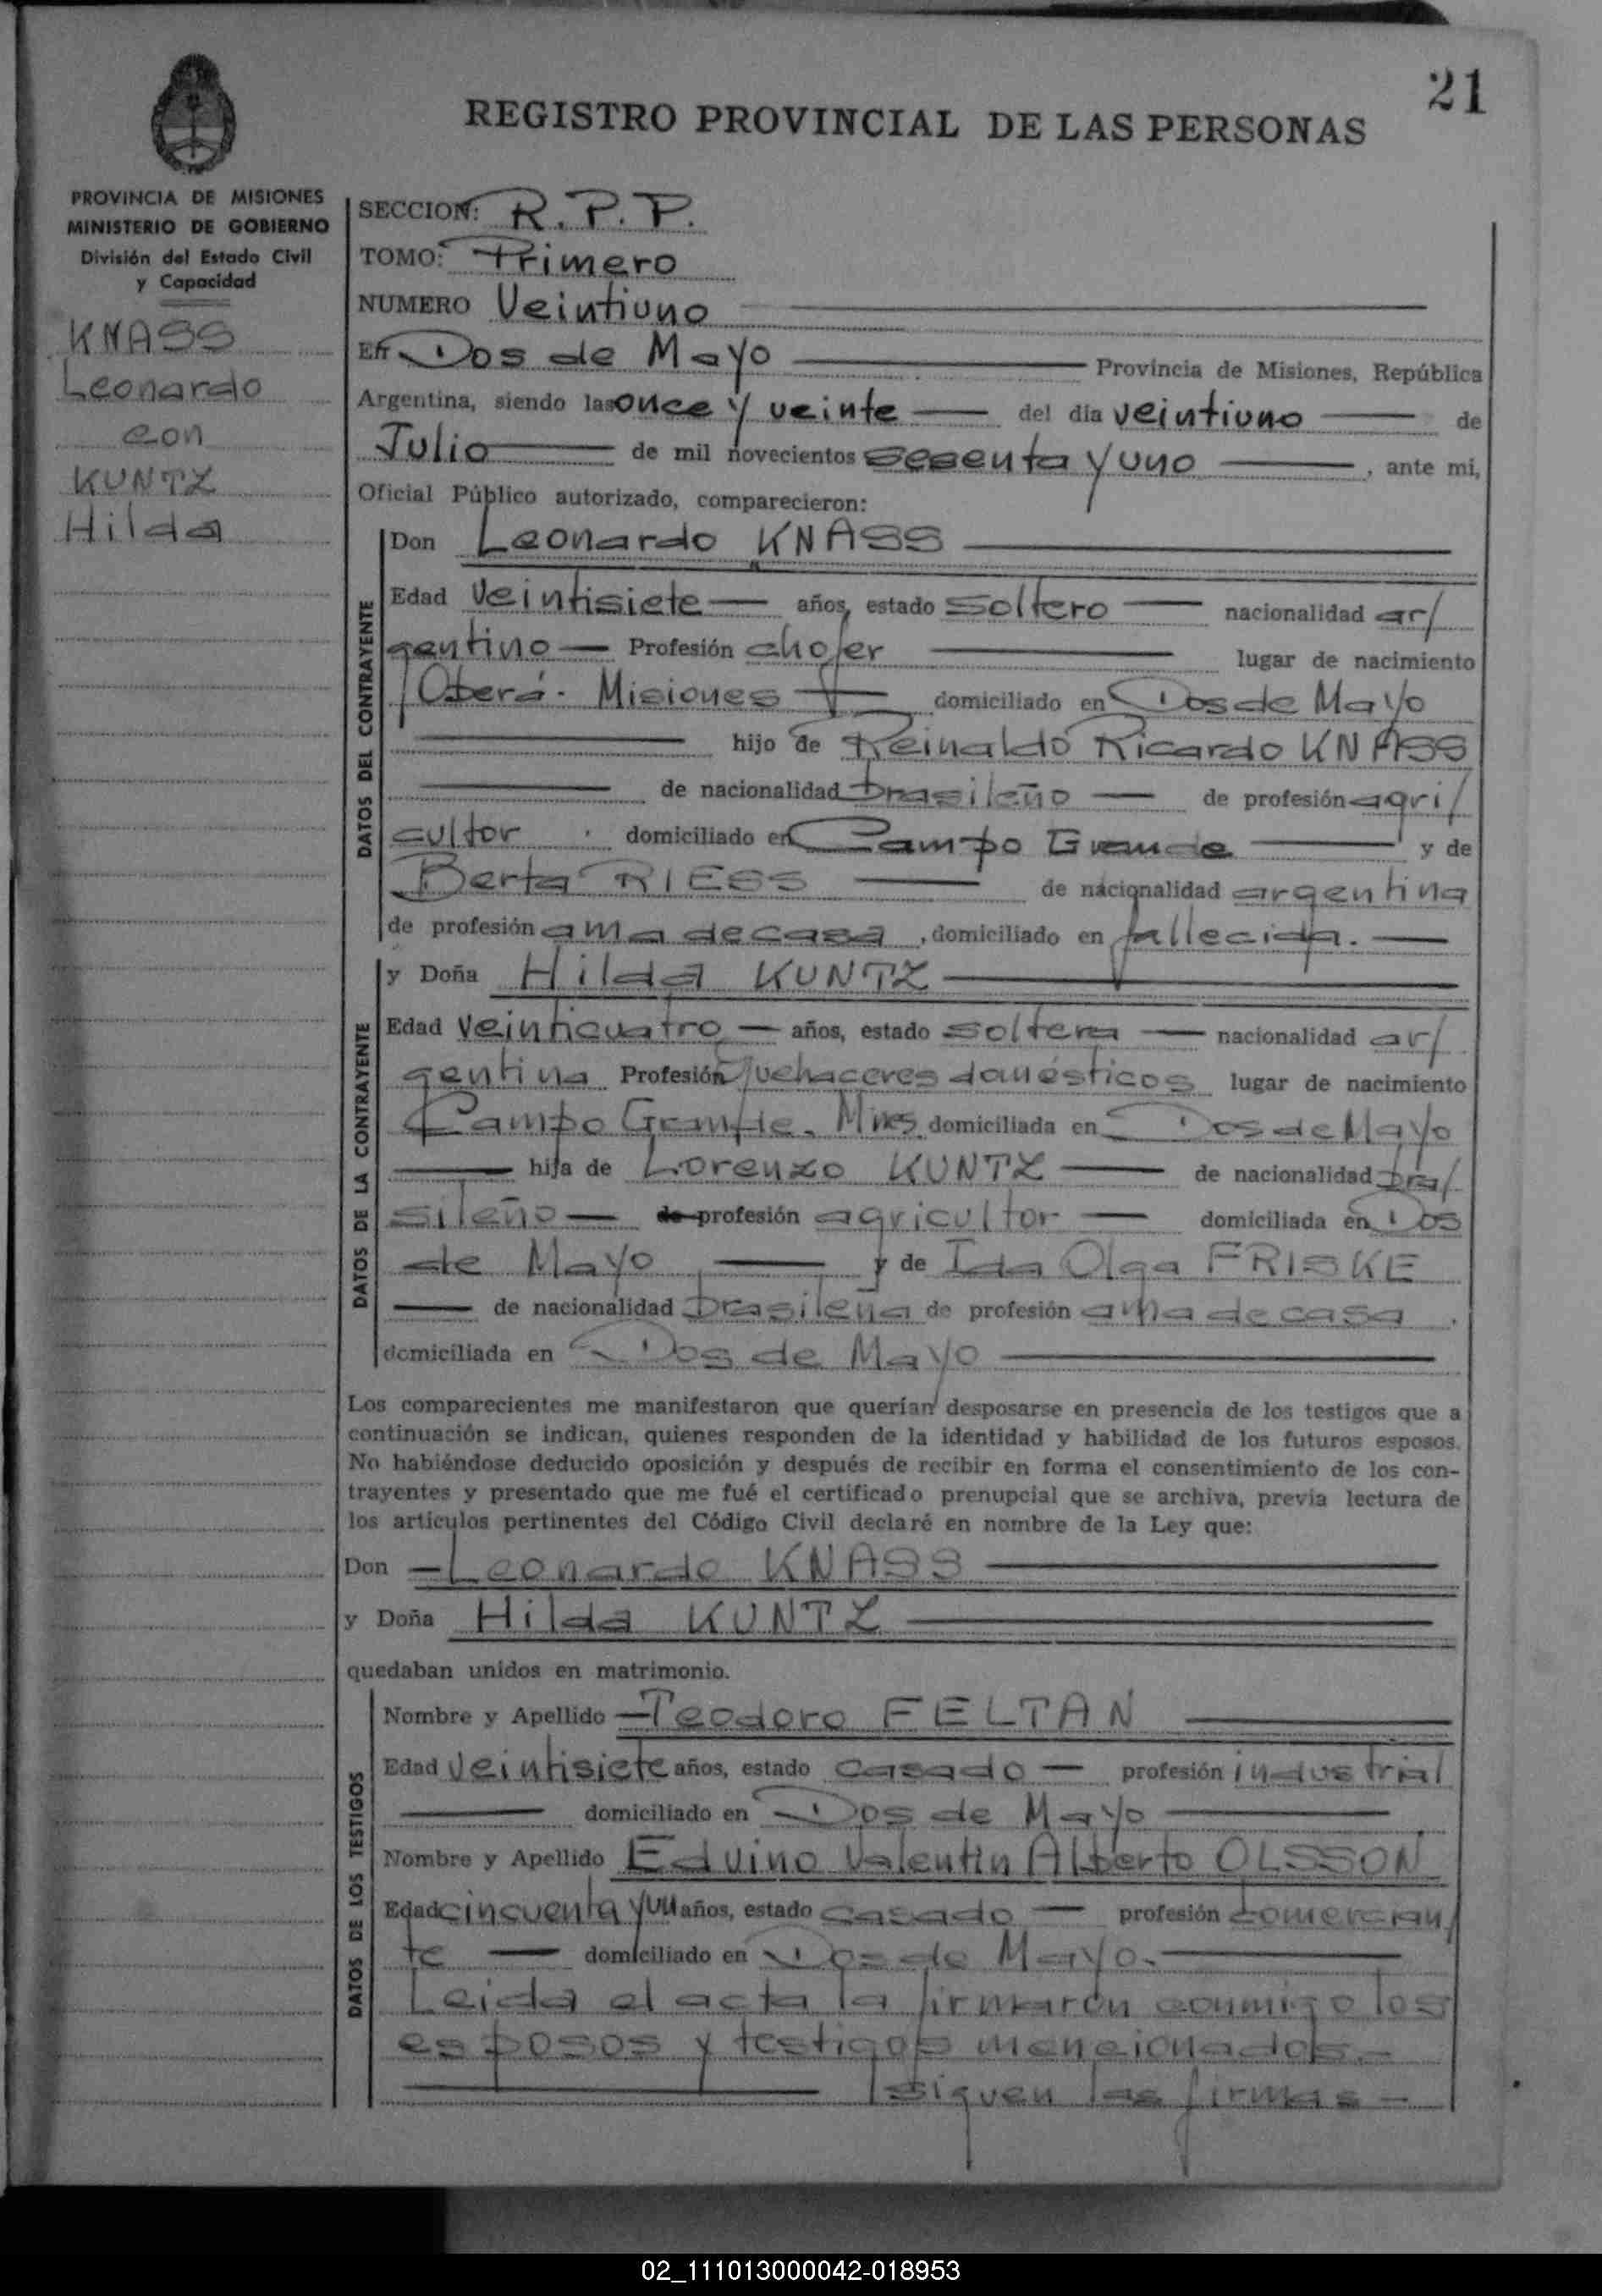 21
REGISTRO PROVINCIAL DE LAS PERSONAS
PROVINCIA DE MISIONES
MINISTERIO DE GOBIERNO
División del Estado Civil
y Capacidad
KNASS
Leonardo
con
KUNTZ
Hilda
SECCION: R.P.P.
TOMO: Primero
NUMERO Veintiuno
En Dos de Mayo Provincia de Misiones, República
Argentina, siendo las once y veinte del día veintiuno de
Julio de mil novecientos sesenta y uno, ante mi,
Oficial Público autorizado, comparecieron:
DATOS DEL CONTRAYENTE
Don Leonardo KNASS
Edad veintisiete años, estado soltero nacionalidad ar/
gentino Profesión chofer lugar de nacimiento
Oberá. Misiones domiciliado en Dos de Mayo
hijo de Reinaldo Ricardo KNASS
de nacionalidad brasileño de profesión agri/
cultor domiciliado en Campo Grande y de
Berta RIESS de nacionalidad argentina
de profesión ama de casa, domiciliado en fallecida.
DATOS DE LA CONTRAYENTE
y Doña Hilda KUNTZ
Edad veinticuatro años, estado soltera nacionalidad ar/
gentina Profesión quehaceres domésticos lugar de nacimiento
Campo Grande. Mnes. domiciliada en Dos de Mayo
hija de Lorenzo KUNTZ de nacionalidad bra/
sileño de profesión agricultor domiciliada en Dos
de Mayo y de Ida Olga FRISKE
de nacionalidad brasileña de profesión ama de casa.
domiciliada en Dos de Mayo
Los comparecientes me manifestaron que querían desposarse en presencia de los testigos que a
continuación se indican, quienes responden de la identidad y habilidad de los futuros esposos.
No habiéndose deducido oposición y después de recibir en forma el consentimiento de los con-
trayentes y presentado que me fué el certificado prenupcial que se archiva, previa lectura de
los artículos pertinentes del Código Civil declaré en nombre de la Ley que:
Don Leonardo KNASS
y Doña Hilda KUNTZ
quedaban unidos en matrimonio.
DATOS DE LOS TESTIGOS
Nombre y Apellido Teodoro FELTAN
Edad veintisiete años, estado casado profesión industrial
domiciliado en Dos de Mayo
Nombre y Apellido Eduino Valentin Alberto OLSSON
Edad cincuenta y un años, estado casado profesión comercian/
te domiciliado en Dos de Mayo.
Leida el acta la firmaron conmigo los
esposos y testigos mencionados.-
siguen las firmas -
02_111013000042-018953